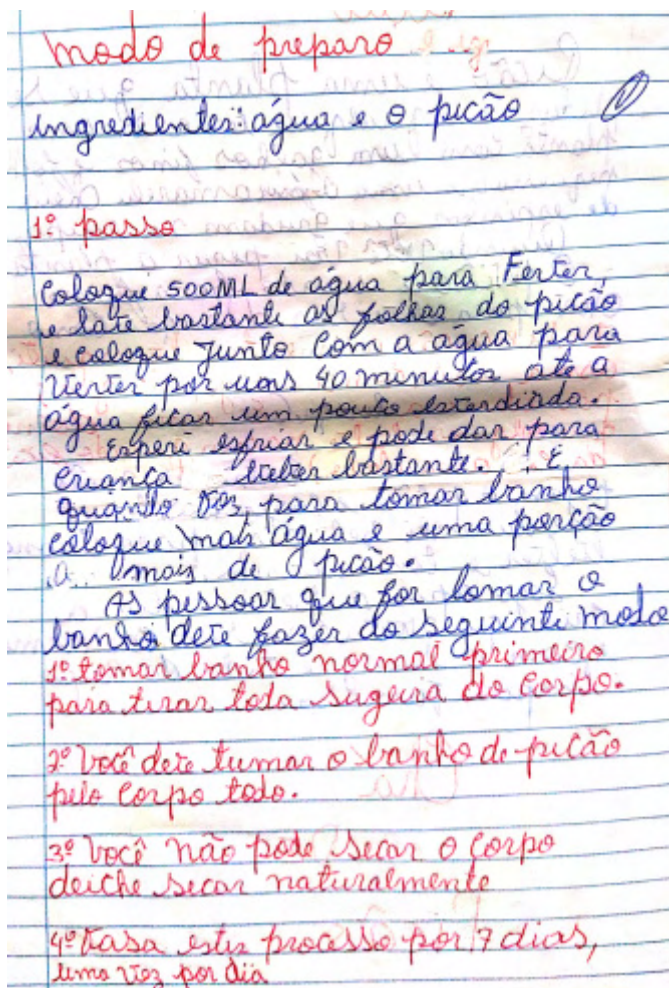 modo de preparo
ingredientes: água e o picão
1º passo
Coloque 500ML de água para Ferter,
e late bastante as folhas do picão
e coloque Junto Com a água para
Verter por uns 40 minutos até a
água ficar um pouco
Esperi esfriar e pode dar para
Criança beber bastante. E
quando for para tomar banho
coloque mais água e uma porção
a mais de picão.
As pessoar que for tomar o
banho dete fazer do seguinte modo
1º tomar banho normal primeiro
para tirar toda sugeira do Corpo.
2º Você dete tumar o banho de picão
pelo Corpo todo.
3º Você não pode secar o Corpo
deiche secar naturalmente
4º processo por 7 dias,
uma vez por dia